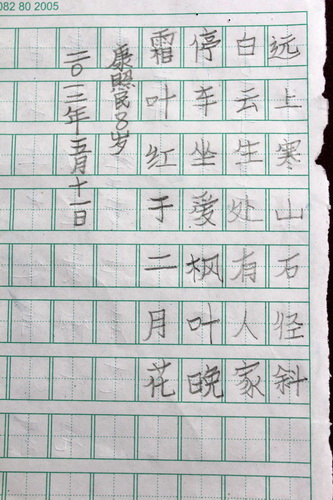 082 80 2005
远上寒山石径斜
白云生处有人家
停车坐爱枫叶晚
霜叶红于二月花
康熙民8岁
二〇一二年五月十一日